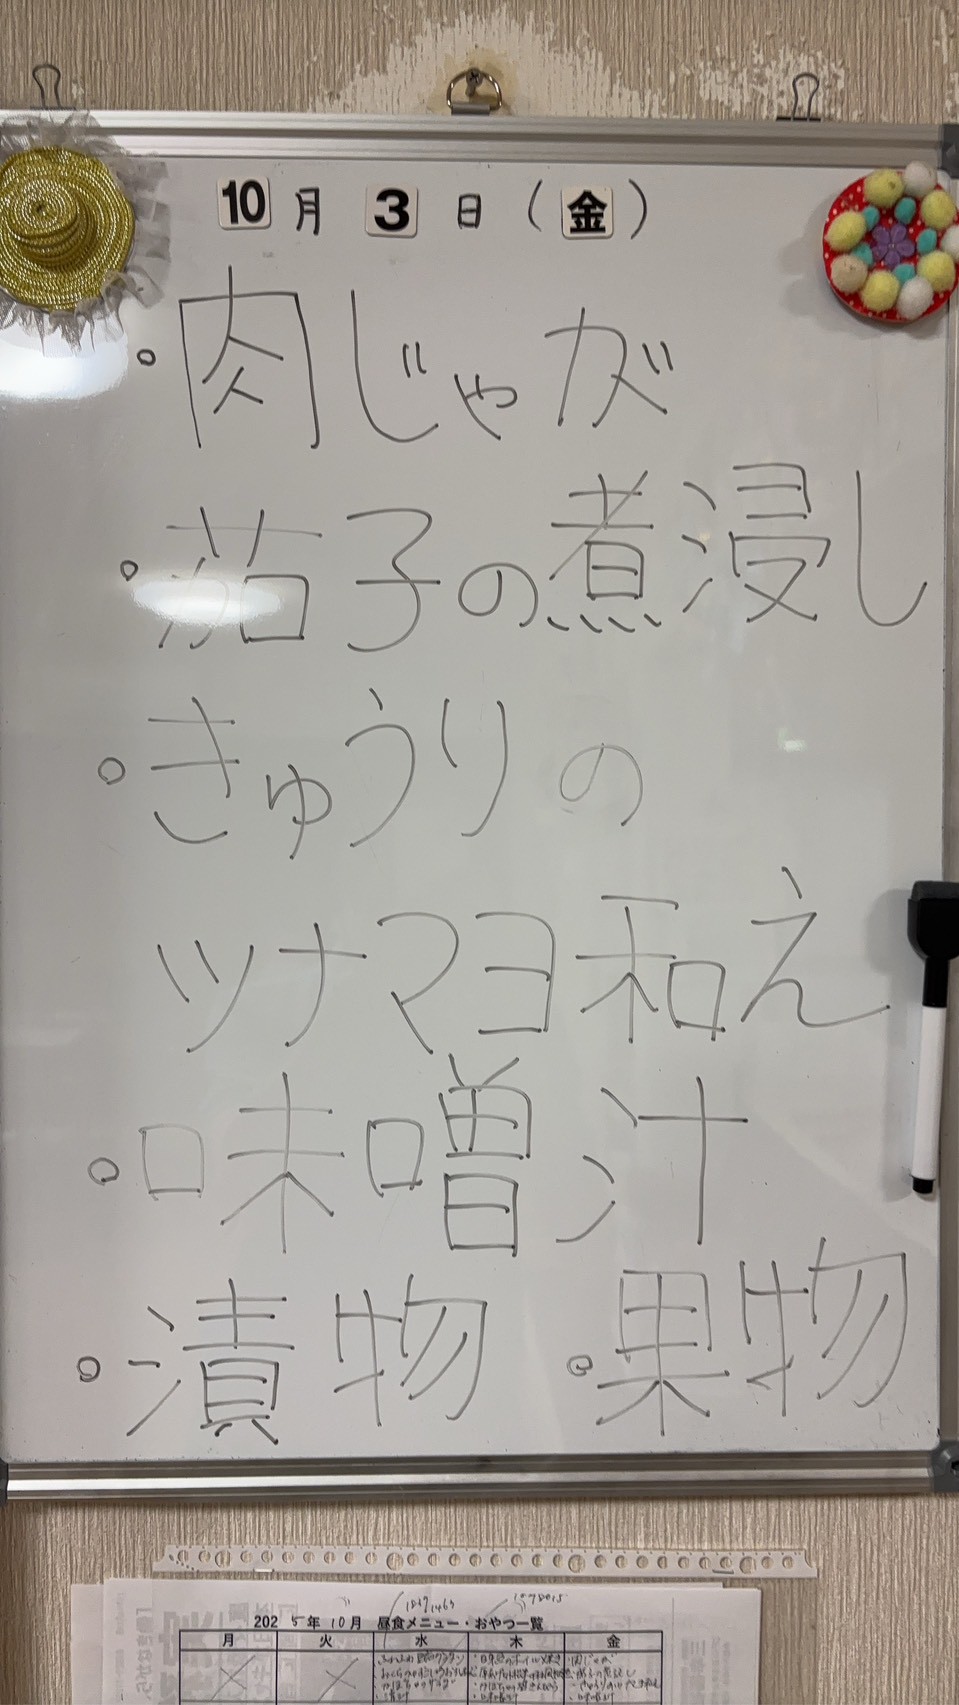 10月3日(金)
。肉じゃが
。茄子の煮浸し
。きゅうりの
ツナマヨ和え
。味噌汁
。漬物 。果物
2025年10月 昼食メニュー・おやつ一覧
月 火 水 木 金